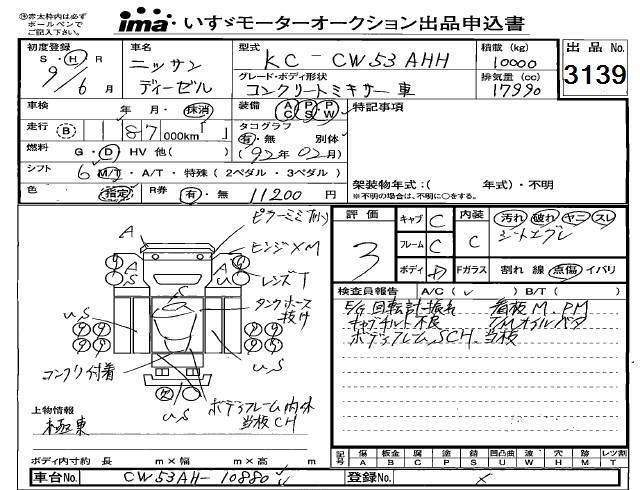 ※赤太枠内は必ず
ボールペンで
ご記入下さい。
ima いすゞモーターオークション出品申込書
初度登録 車名 型式 積載 (kg) 出品 No.
S・H・R ニッサン KC-CW53AHH 10000
9/6月 ディーゼル グレード・ボディ形状 排気量 (cc) 3139
コンクリートミキサー車 17990
車検 年 月・抹消 装備 AC PS PW 特記事項
走行 B 187 000km タコグラフ
有・無 別体
燃料 G・D HV 他( ) (92年02月)
シフト 6 M/T・A/T・特殊(2ペダル・3ペダル)
架装物年式:( 年式)・不明
色 指定 R券 有・無 11200円
※不明の場合は、不明に○をする。
ピラーミミ
A ヒンジXM
レンズT
タンクホース
抜け
u,S
u,S
コンクリ付着
ボデーフレーム内外
当板CH
u,S
上物情報
極東
ボディ内寸約 長 m×幅 m×高 m
評価 キャブ C 内装 汚れ 破れ ヤニ スレ
3 フレーム C C シートコゲ
ボディ D Fガラス 割れ 線 点傷 イバリ
検査員報告 A/C( ) B/T( )
E/G回転計振れ 看板M、PM
キャブチルト不良 T/Mオイルバタ
ボデーフレームSCH、当板
記号 傷 A 板金 B 腐 C 塗 P 錆 S 凹凸曲 U 波 W 穴 H 隊 M レツ割 T
車台No. CW53AH-10880 登録No. ×